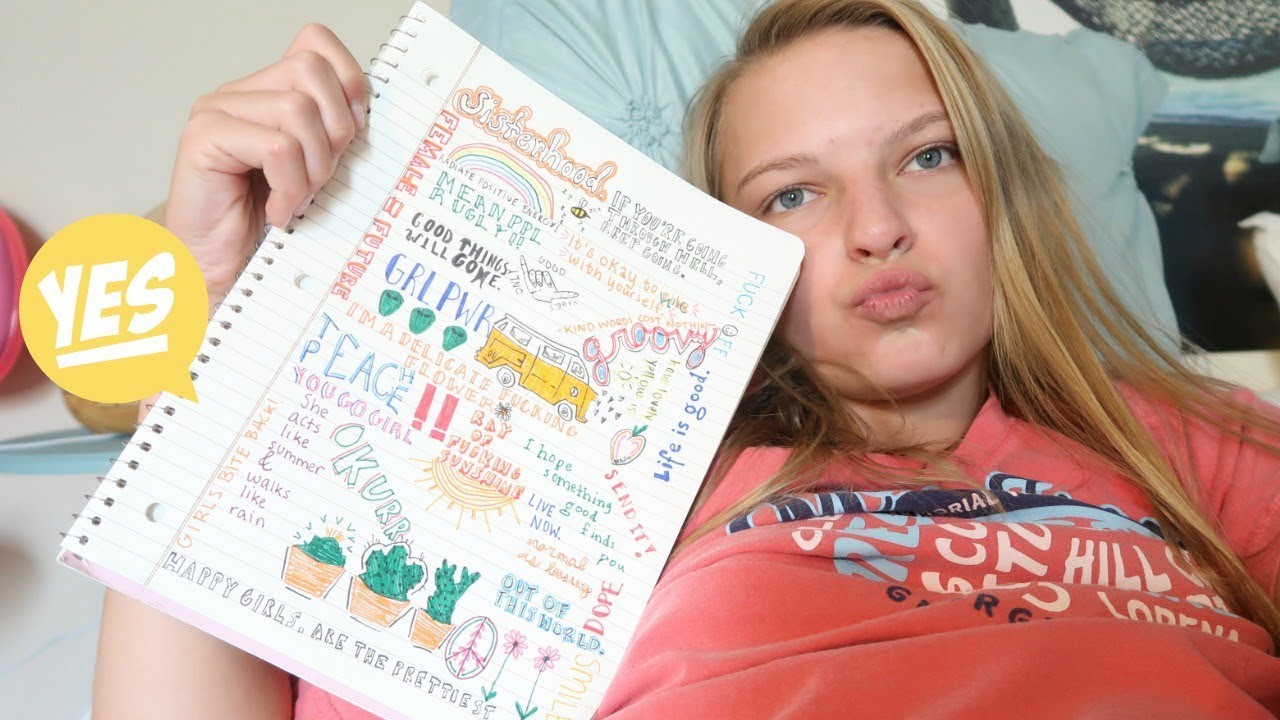 YES
Sisterhood.
FEMALE = FUTURE
RADIATE POSITIVE ENERGY!
MEAN PPL
R UGLY!!
IF YOU'RE GOING
THROUGH HELL,
KEEP
GOING.
GOOD THINGS
WILL COME.
GOOD
It's okay to
with yourself
GRL PWR
-KIND WORDS COST NOTHIN'-
groovy
FUCK OFF
how lovely
yellow is
Life is good.
I'M A DELICATE
FUCKING
FLOWER
TEACH
PEACE
!!
YOU GO GIRL
RAY
OF
FUCKING
SUNSHINE
She
acts
like
summer
&
walks
like
rain
GIRLS BITE BACK!
OKURRR
I hope
something
good
finds
you
SEND IT!
LIVE
NOW.
normal
is boring
OUT OF
THIS WORLD.
DOPE
SMILE
HAPPY GIRLS. ARE THE PRETTIEST
HILL
LORENA